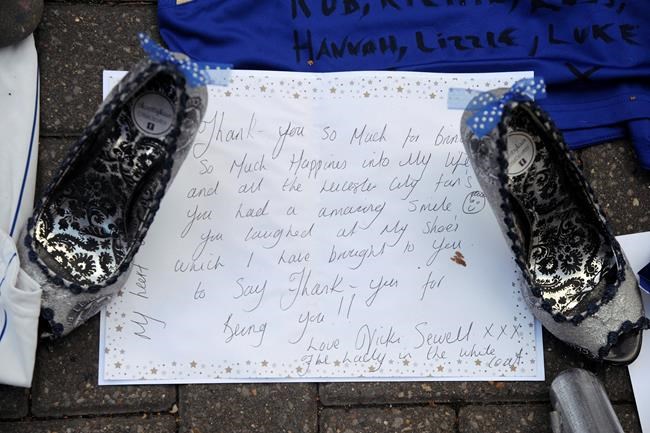 ROB, RICHARD, ROSS,
HANNAH, LIZZIE, LUKE
X
Thank-you so Much for brin
So Much Happines into My life
and all the Leicester City fan's
You had a amazing Smile
You laughed at My Shoe's
Which I have brought to You
to Say Thank-you for
Being you!!
Love Vicki Sewell xxx
The Lady in the white
coat
My heart